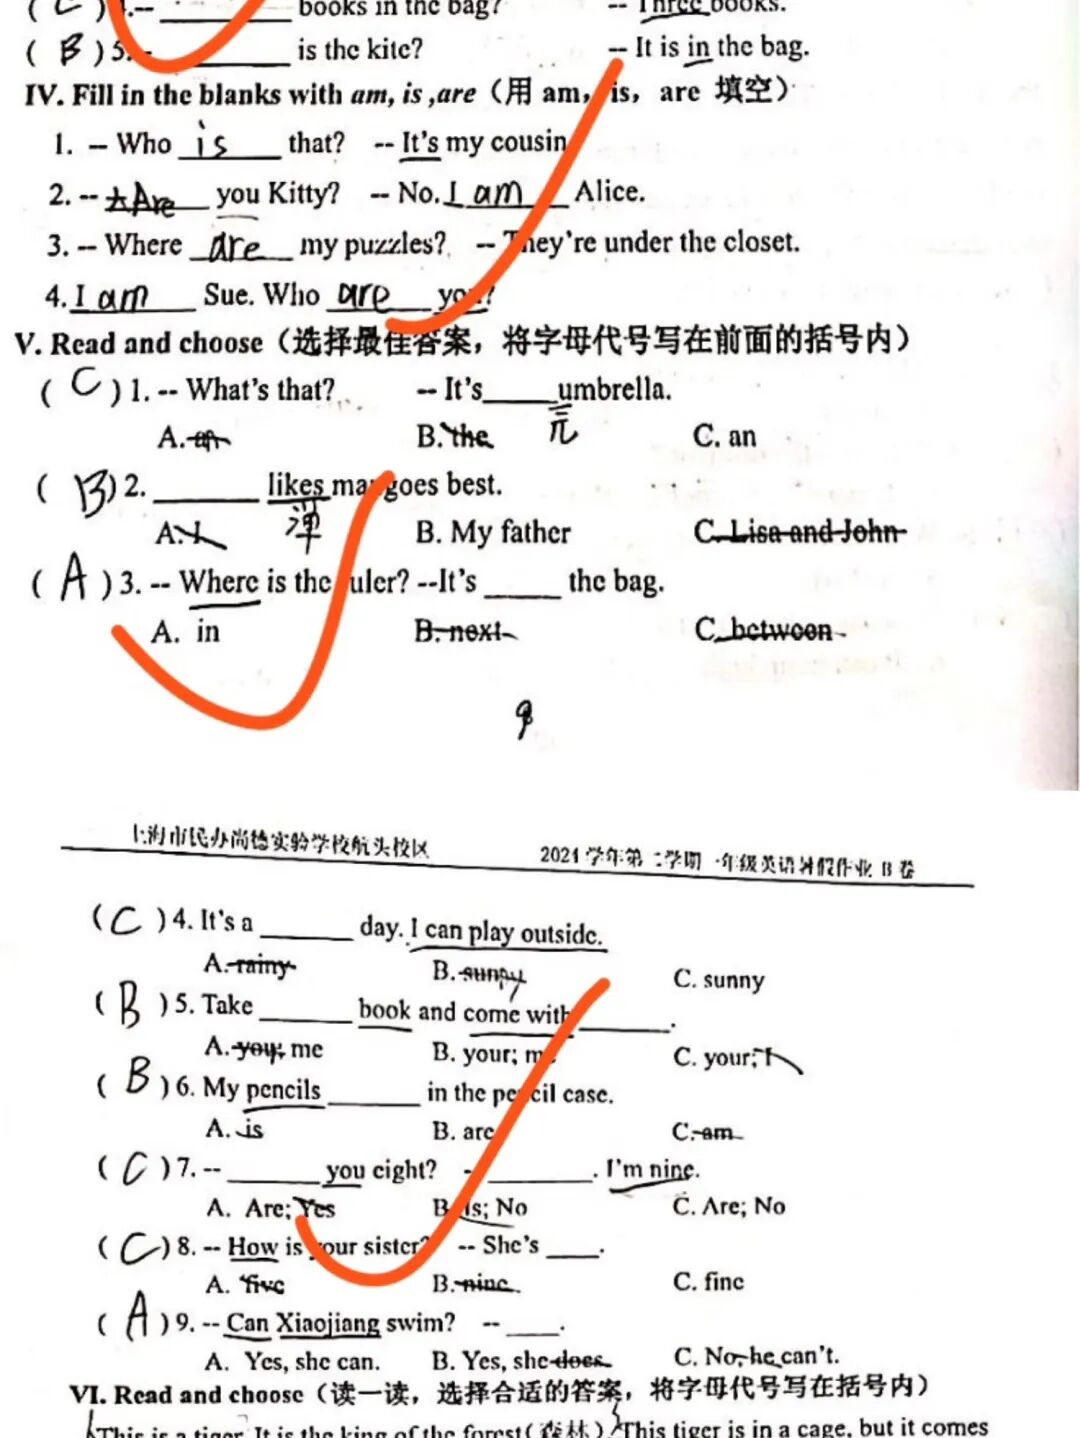 ( C ) 4.-- ________ books in the bag? -- Three books.
( B ) 5. -- ________ is the kite? -- It is in the bag.
IV. Fill in the blanks with am, is ,are（用 am，is，are 填空）
1. -- Who is that? -- It's my cousin
2. -- Are you Kitty? -- No. I am Alice.
3. -- Where are my puzzles? -- They're under the closet.
4. I am Sue. Who are you?
V. Read and choose（选择最佳答案，将字母代号写在前面的括号内）
( C ) 1. -- What's that? -- It's_____umbrella.
元
A. an B. the C. an
( B ) 2. ________ likes mangoes best.
A. I B. My father C. Lisa and John
( A ) 3. -- Where is the ruler? --It's _____ the bag.
A. in B. next C. between
上海市民办尚德实验学校航头校区 2021 学年第二学期一年级英语暑假作业 B 卷
( C ) 4. It's a ________ day. I can play outside.
A. rainy B. sunny C. sunny
( B ) 5. Take ________ book and come with ________.
A. you; me B. your; me C. your; I
( B ) 6. My pencils ________ in the pencil case.
A. is B. are C. am
( C ) 7. -- ________ you eight? -- ________. I'm nine.
A. Are; Yes B. Is; No C. Are; No
( C ) 8. -- How is your sister? -- She's ____.
A. five B. nine C. fine
( A ) 9. -- Can Xiaojiang swim? -- ____.
A. Yes, she can. B. Yes, she does. C. No, he can't.
VI. Read and choose（读一读，选择合适的答案，将字母代号写在括号内）
This is a tiger. It is the king of the forest(森林). This tiger is in a cage, but it comes